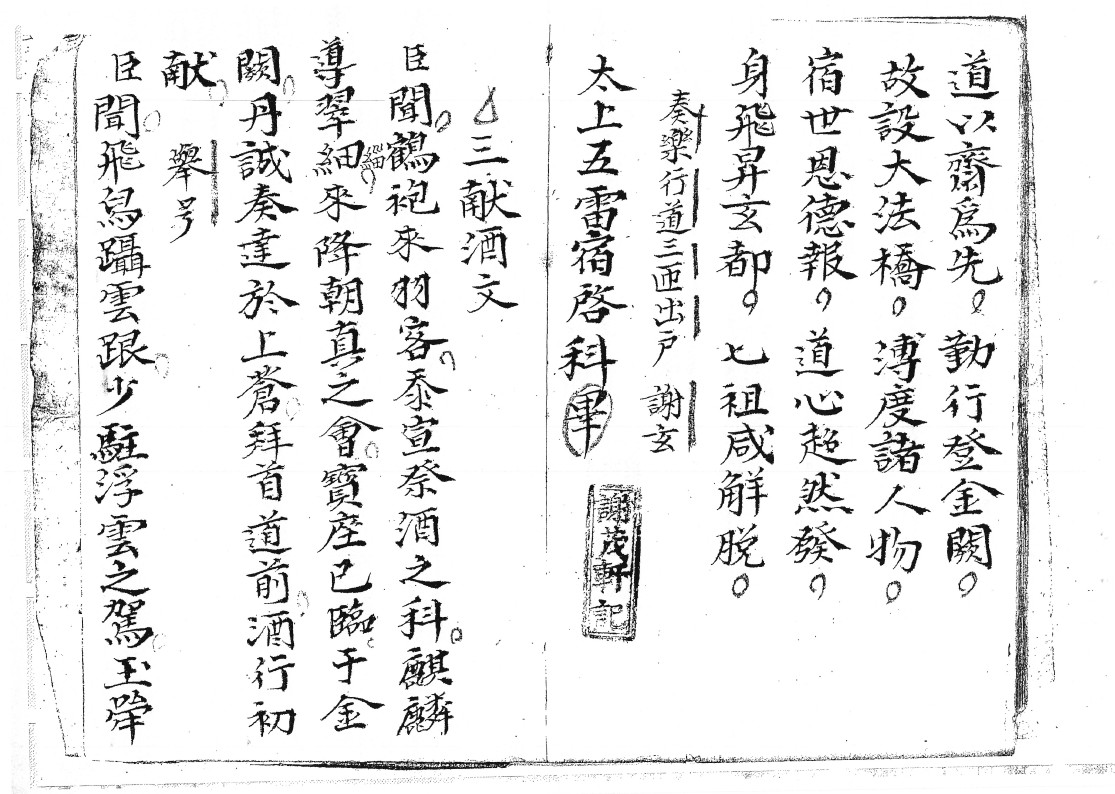 道以齋爲先。勤行登金闕。
故設大法橋。溥度諸人物。
宿世恩德報。道心超然發。
身飛昇玄都。七祖咸解脫。
奏樂行道三匝出戶 謝玄
太上五雷宿啓科畢
謝茂軒記
三献酒文
臣聞鶴袍來羽客。忝宣祭酒之科。麒麟
導翠細緇來降朝真之會。寶座已臨于金
闕。丹誠奏達於上蒼。拜首道前。酒行初
献。 舉号
臣聞飛舄躡雲踉。少駐浮雲之駕。玉斝